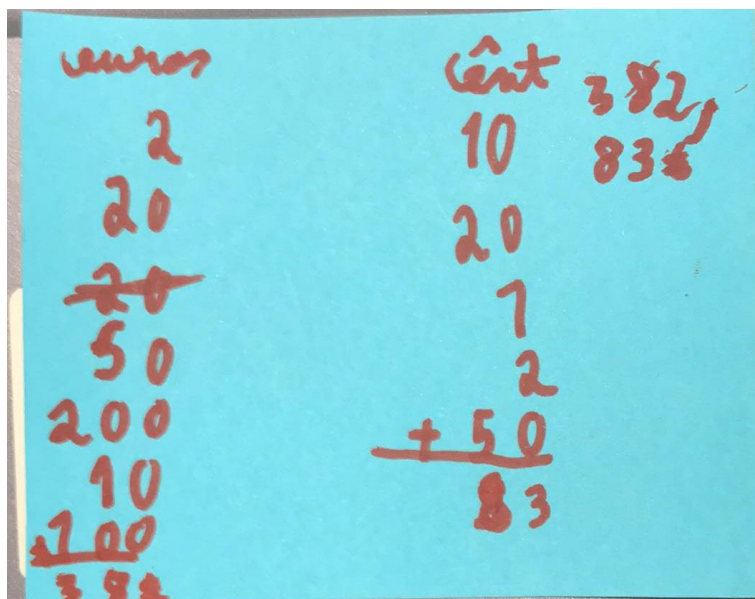 euros
2
20
20
50
200
10
+ 100
382
cênt
10
20
1
2
+ 50
83
382,
83